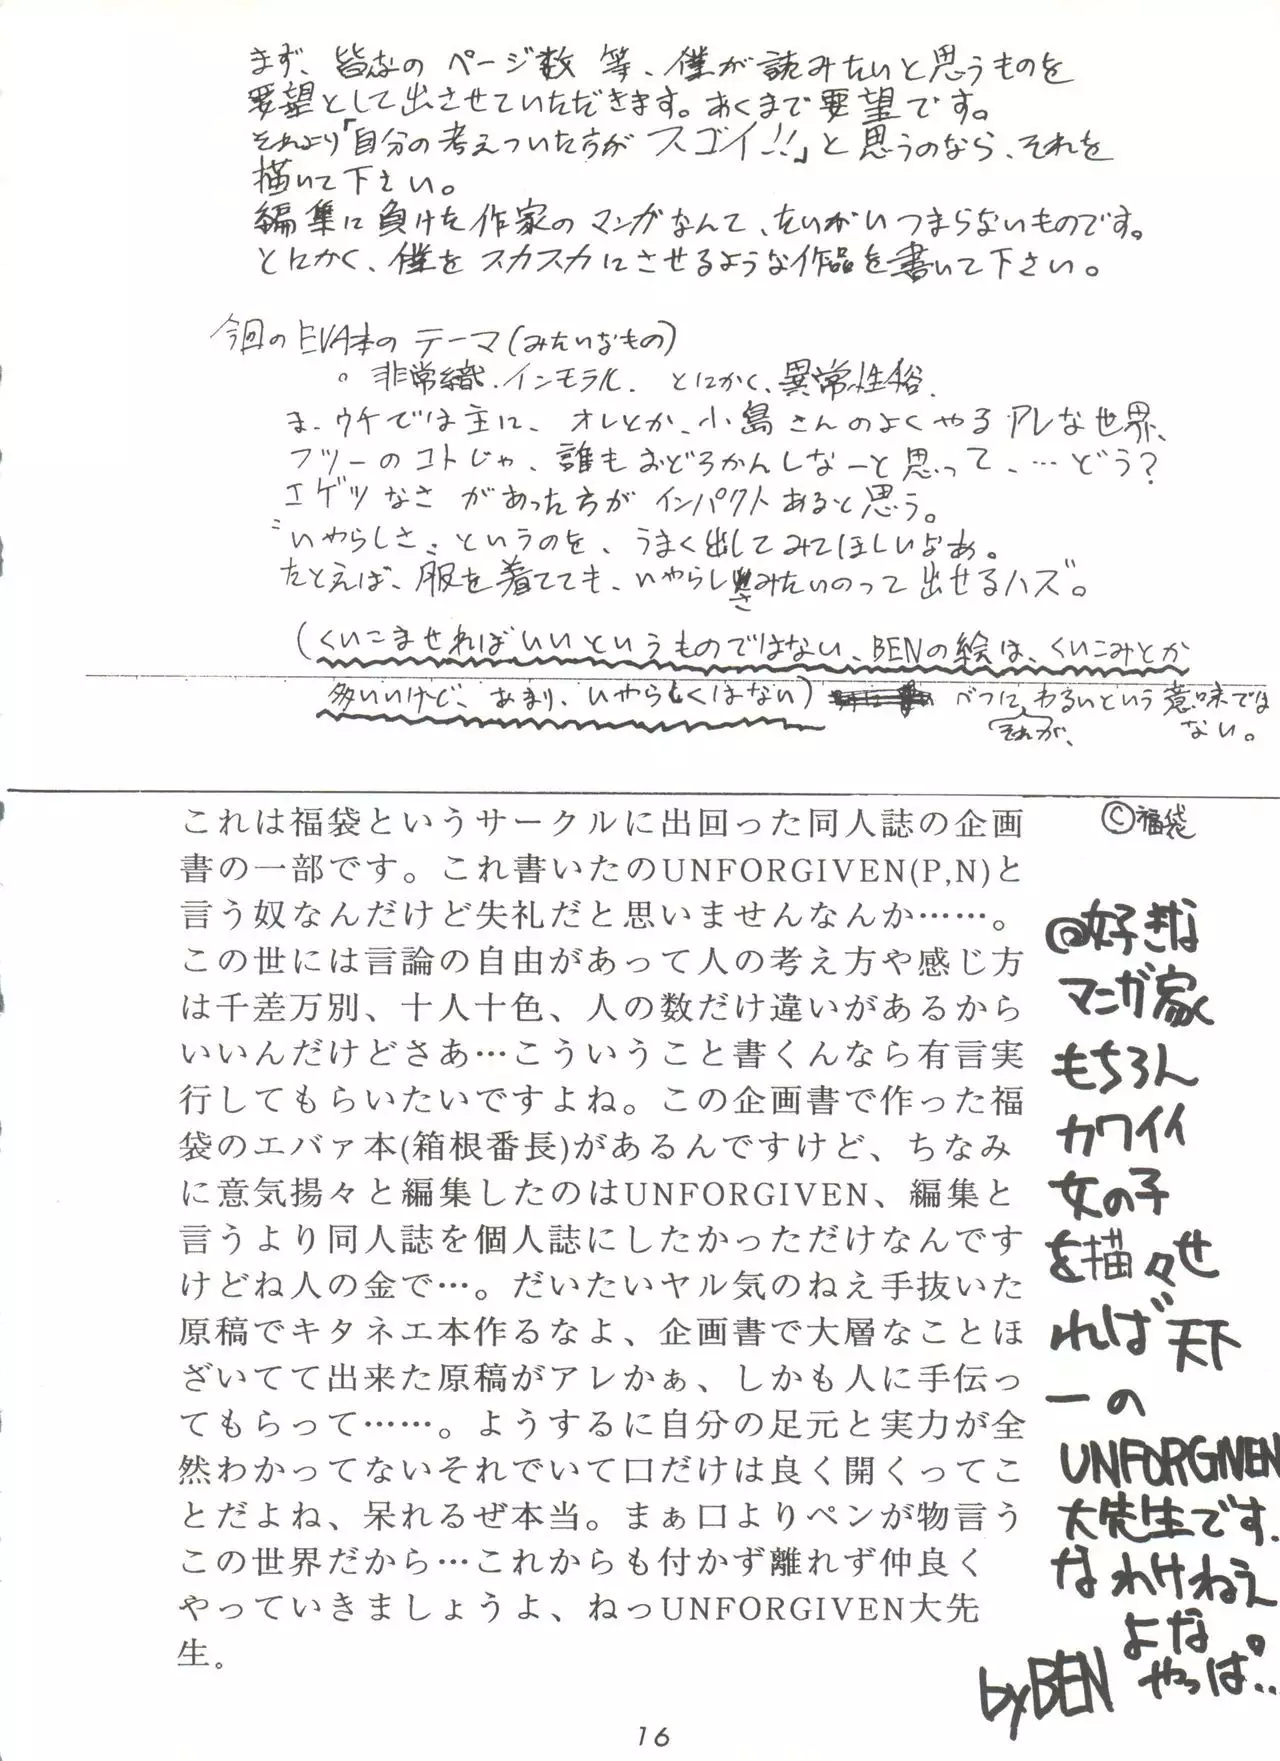 まず、皆なのページ数等、僕が読みたいと思うものを
要望として出させていただきます。あくまで要望です。
それより「自分の考えついた方がスゴイ!!」と思うのなら、それを
描いて下さい。
編集に負けた作家のマンガなんて、たいがいつまらないものです。
とにかく、僕をスカスカにさせるような作品を書いて下さい。
今回のEVA本のテーマ(みたいなもの)
。非常織.インモラル. とにかく、異常性俗.
ま、ウチでは主に、オレとか、小島さんのよくやるアレな世界、
フツーのコトじゃ、誰もおどろかんしなーと思って、…どう?
エゲツなさがあった方がインパクトあると思う。
"いやらしさ"というのを、うまく出してみてほしいなあ。
たとえば、服を着てても、いやらしさみたいのって出せるハズ。
(くいこませればいいというものではない、BENの絵は、くいこみとか
多いいけど、あまり、いやらしくはない) べつにそれが、わるいという意味では
ない。
これは福袋というサークルに出回った同人誌の企画
書の一部です。これ書いたのUNFORGIVEN(P,N)と
言う奴なんだけど失礼だと思いませんなんか……。
この世には言論の自由があって人の考え方や感じ方
は千差万別、十人十色、人の数だけ違いがあるから
いいんだけどさあ…こういうこと書くんなら有言実
行してもらいたいですよね。この企画書で作った福
袋のエバァ本(箱根番長)があるんですけど、ちなみ
に意気揚々と編集したのはUNFORGIVEN、編集と
言うより同人誌を個人誌にしたかっただけなんです
けどね人の金で…。だいたいヤル気のねえ手抜いた
原稿でキタネエ本作るなよ、企画書で大層なことほ
ざいてて出来た原稿がアレかぁ、しかも人に手伝っ
てもらって……。ようするに自分の足元と実力が全
然わかってないそれでいて口だけは良く開くってこ
とだよね、呆れるぜ本当。まぁ口よりペンが物言う
この世界だから…これからも付かず離れず仲良く
やっていきましょうよ、ねっUNFORGIVEN大先
生。
©福袋
@好きな
マンガ家
もちろん
カワイイ
女の子
を描々せ
れば天下
一の
UNFORGIVEN
大先生です.
なわけねぇ
よな。
やっぱ…
by BEN
16